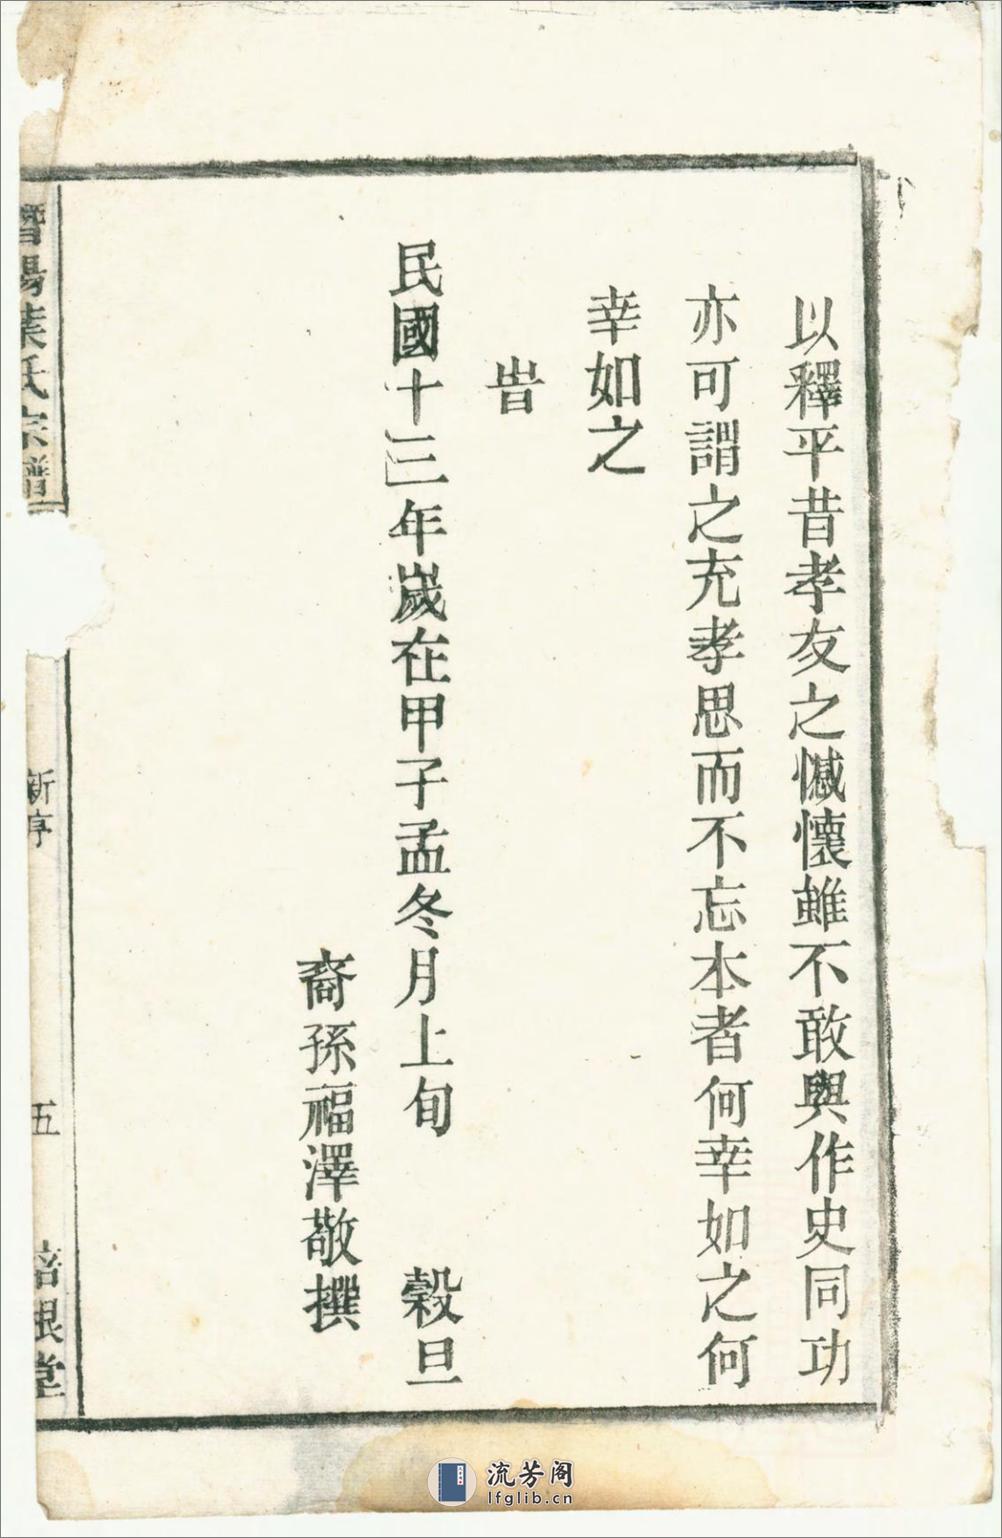 以釋平昔孝友之憾懷雖不敢與作史同功
亦可謂之充孝思而不忘本者何幸如之何
幸如之
旹
民國十三年歲在甲子孟冬月上旬 榖旦
裔孫福澤敬撰
暨陽葉氏宗譜 新序 五 培根堂
流芳阁
lfglib.cn